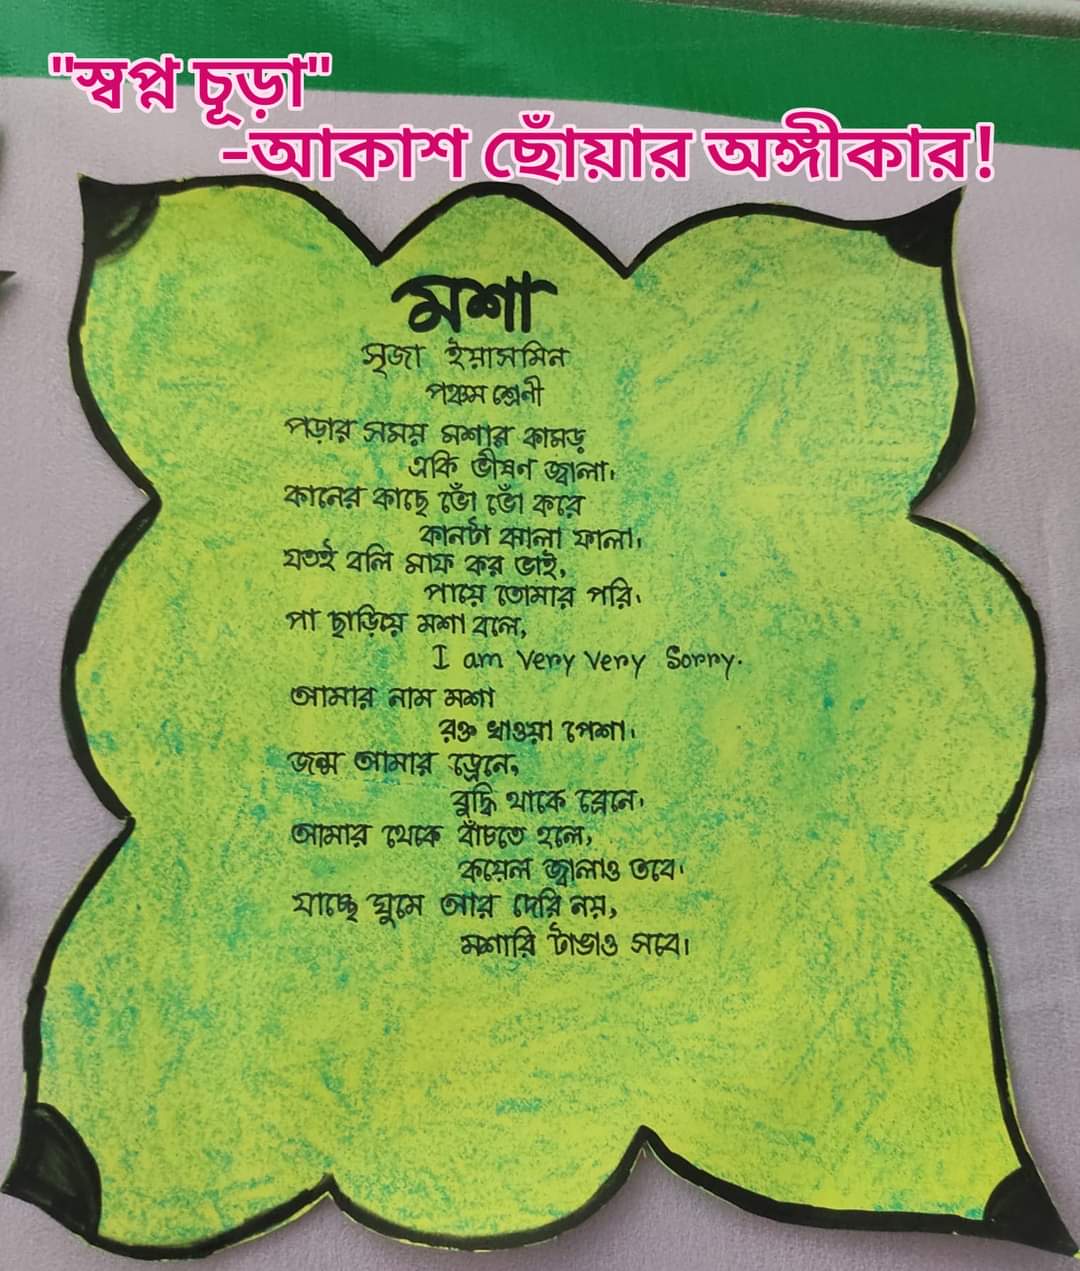 "স্বপ্ন চূড়া"
-আকাশ ছোঁয়ার অঙ্গীকার!
মশা
সৃজা ইয়াসমিন
পঞ্চম শ্রেণী
পড়ার সময় মশার কামড়
একি ভীষণ জ্বালা।
কানের কাছে ভোঁ ভোঁ করে
কানটা ঝালা ফালা।
যতই বলি মাফ কর ভাই,
পায়ে তোমার পরি।
পা ছাড়িয়ে মশা বলে,
I am very very Sorry.
আমার নাম মশা
রক্ত খাওয়া পেশা।
জন্ম আমার ড্রেনে,
বুদ্ধি থাকে ব্রেনে।
আমার থেকে বাঁচতে হলে,
কয়েল জ্বালাও তবে।
যাচ্ছে ঘুমে আর দেরি নয়,
মশারি টাঙাও সবে।